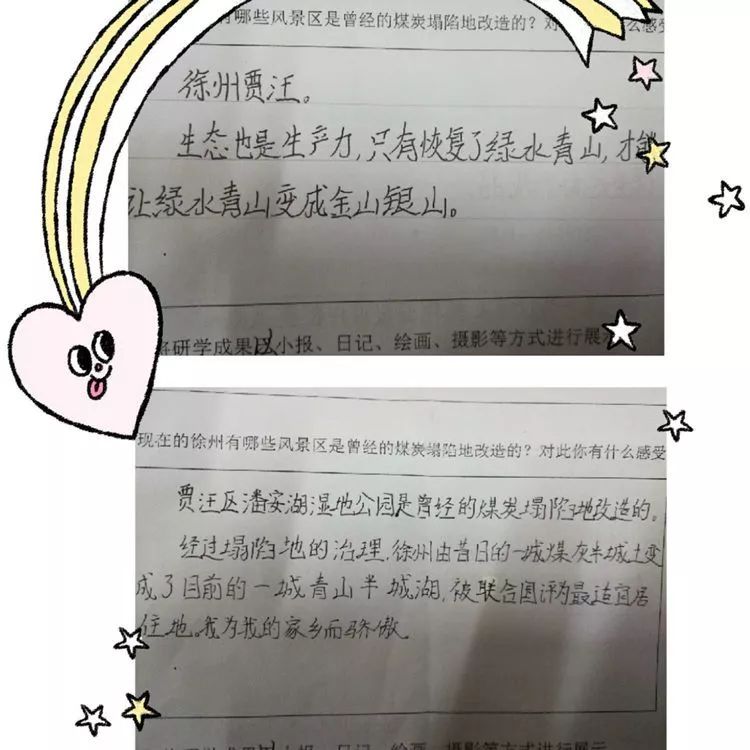 有哪些风景区是曾经的煤炭塌陷地改造的？对 么感受
徐州贾汪。
生态也是生产力,只有恢复了绿水青山,才能
让绿水青山变成金山银山。
将研学成果以小报、日记、绘画、摄影等方式进行展示
现在的徐州有哪些风景区是曾经的煤炭塌陷地改造的？对此你有什么感受
贾汪区潘安湖湿地公园是曾经的煤炭塌陷地改造的。
经过塌陷地的治理,徐州由昔日的一城煤灰半城土变
成了目前的一城青山半城湖,被联合国评为最适宜居
住地。我为我的家乡而骄傲。
小报、日记、绘画、摄影等方式进行展示